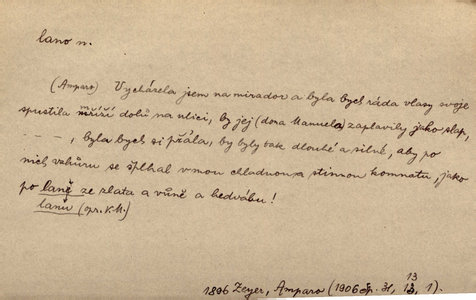 lano n.
(Amparo) Vycházela jsem na mirador a byla bych ráda vlasy svoje
spustila dolů na ulici, by jej (dona Manuela) zaplavily jako slap,
- - - , byla bych si přála, by byly tak dlouhé a silné, aby po
nich vzhůru se šplhal v mou chladnou a stinnou komnatu, jako
po laně ze zlata a vůně a hedvábu!
lanu (opr. V.M.)
13
1896 Zeyer, Amparo (1906 Sp. 31, 13, 1).